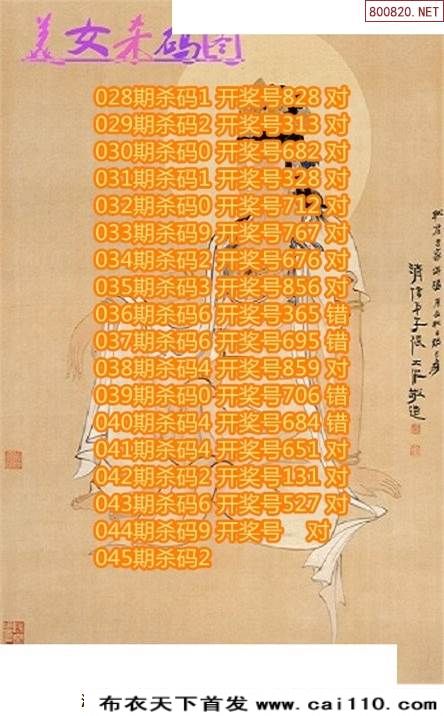 800820.NET
美女杀码图
028期杀码1 开奖号828 对
029期杀码2 开奖号313 对
030期杀码0 开奖号682 对
031期杀码1 开奖号328 对
032期杀码0 开奖号712 对
033期杀码9 开奖号767 对
034期杀码2 开奖号676 对
035期杀码3 开奖号856 对
036期杀码6 开奖号365 错
037期杀码6 开奖号695 错
038期杀码4 开奖号859 对
039期杀码0 开奖号706 错
040期杀码4 开奖号684 错
041期杀码4 开奖号651 对
042期杀码2 开奖号131 对
043期杀码6 开奖号527 对
044期杀码9 开奖号 对
045期杀码2
布衣天下首发 www.cai110.com